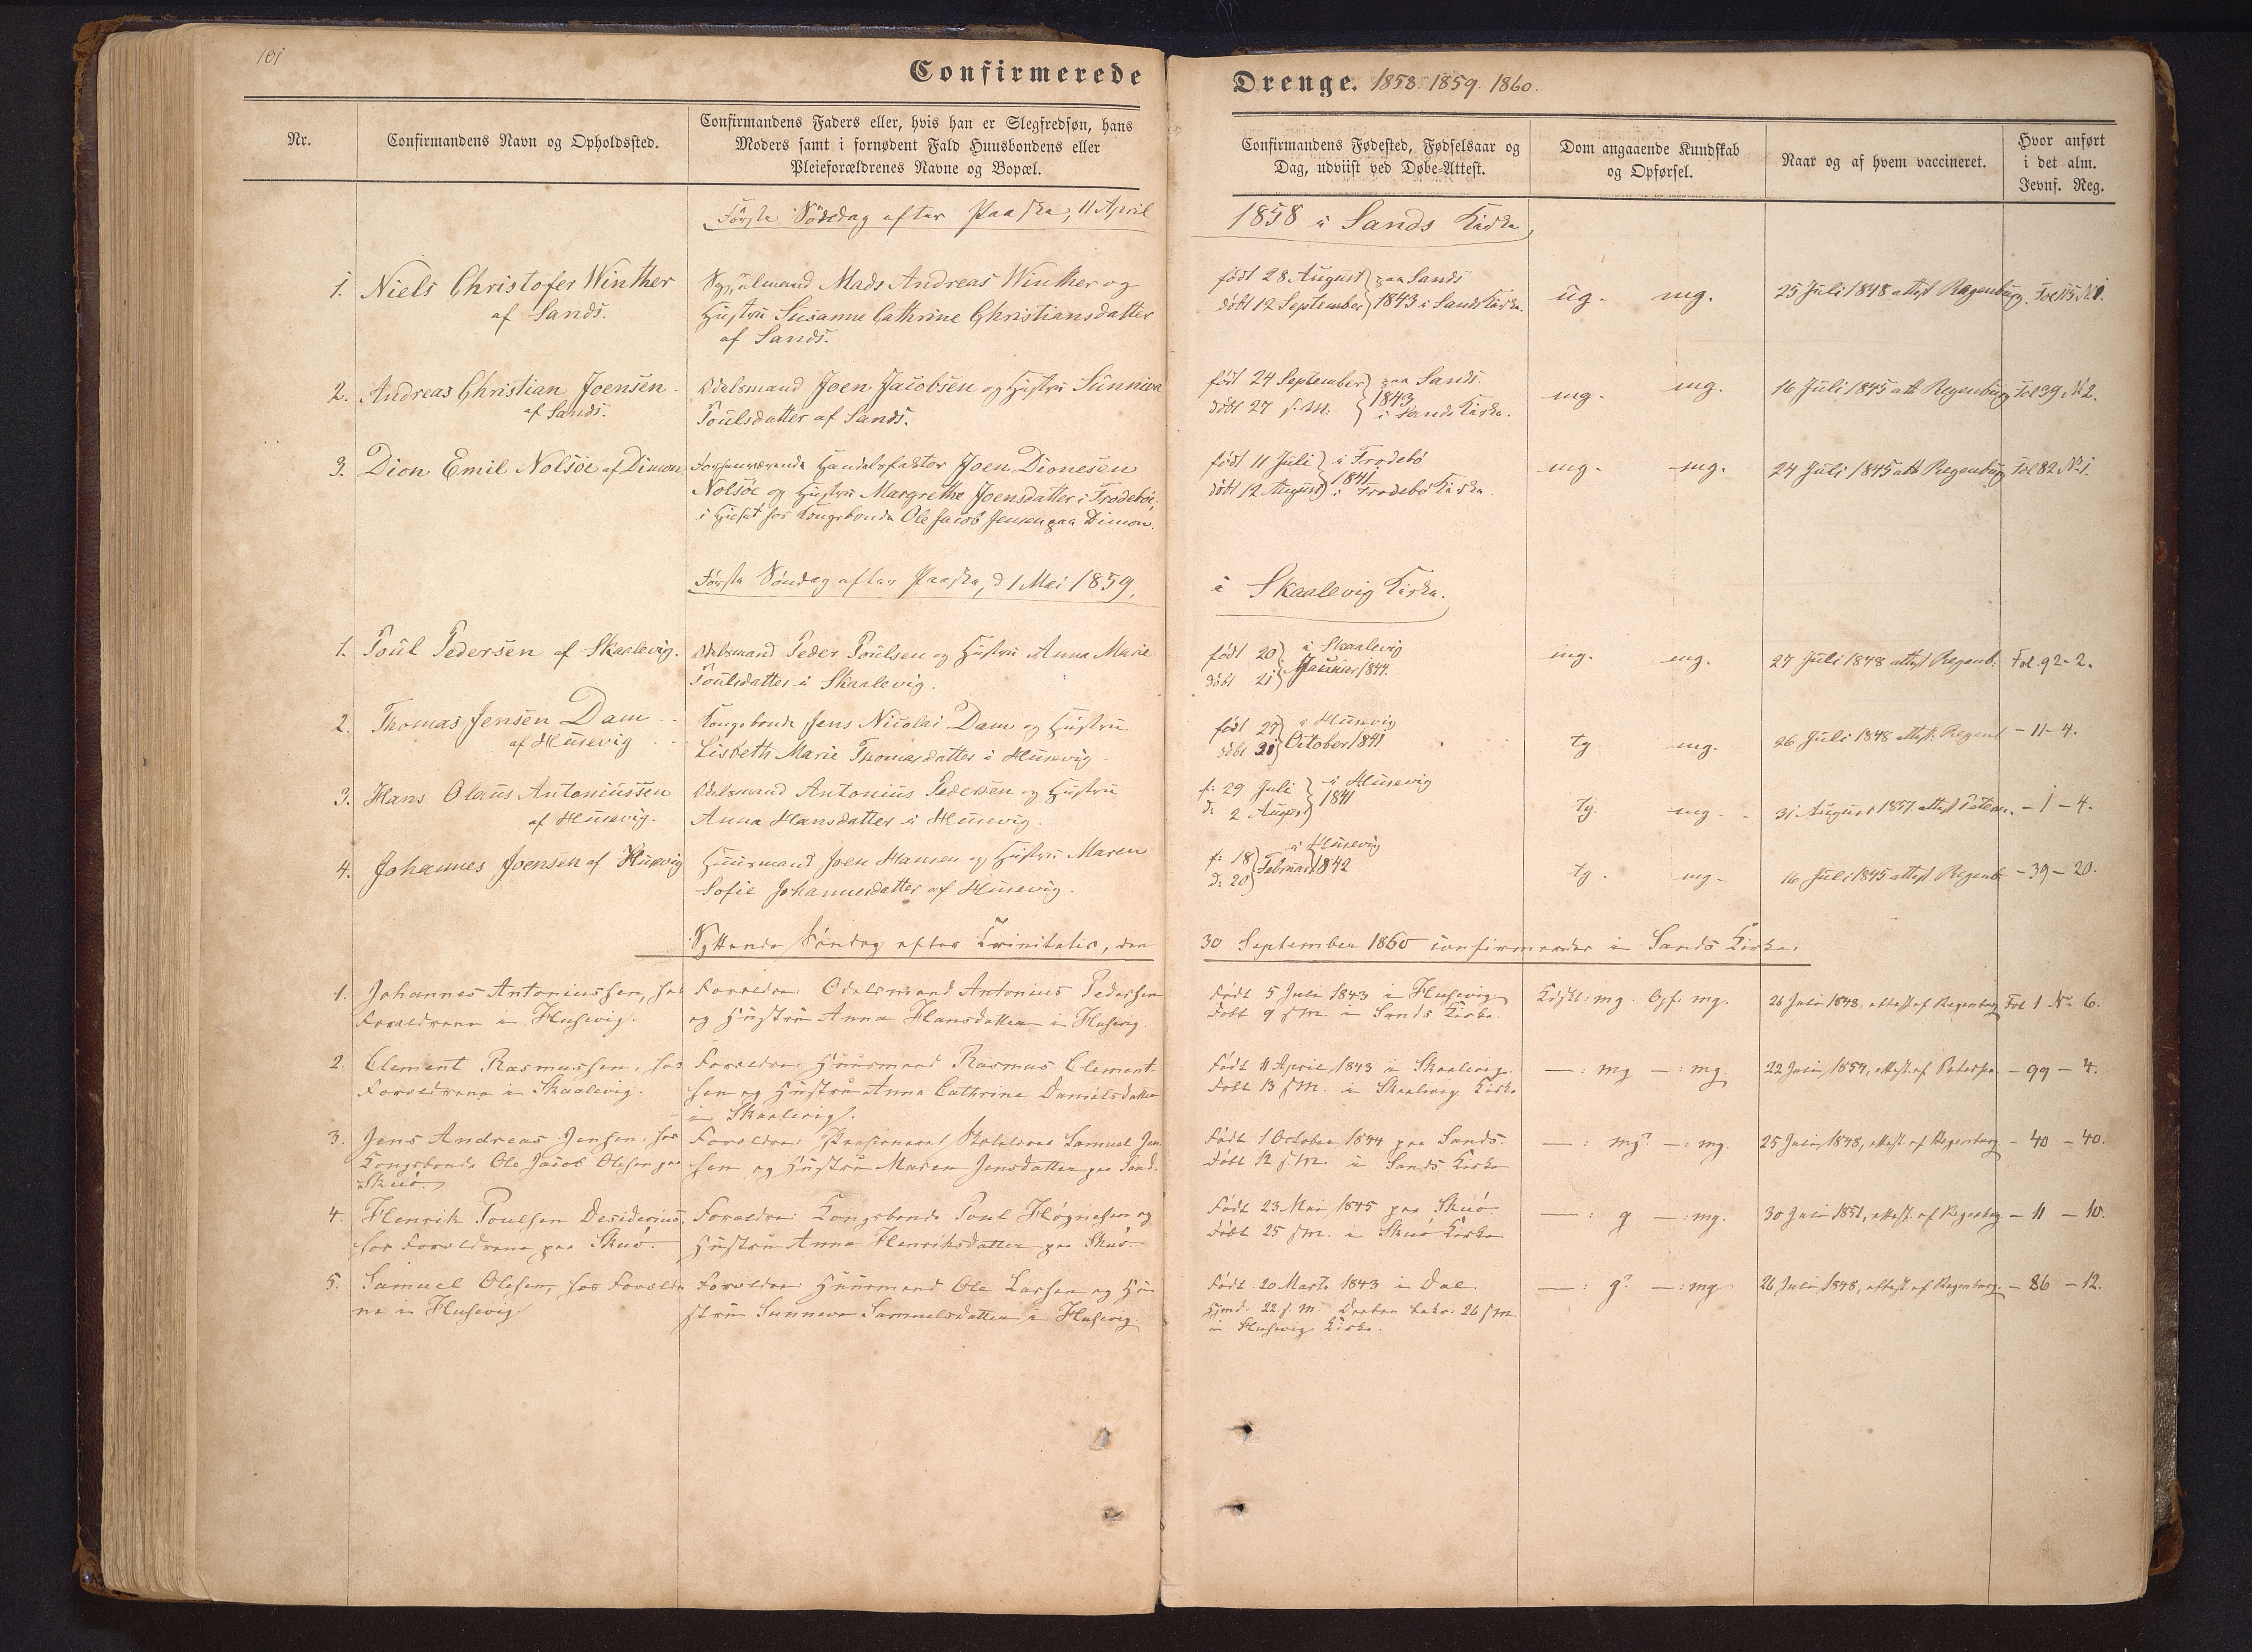 101
Confirmerede
Drenge. 1858. 1859. 1860.
Nr.
Confirmandens Navn og Opholdssted.
Confirmandens Faders eller, hvis han er Slegfredsøn, hans
Moders samt i fornødent Fald Huusbondens eller
Pleieforældrenes Navne og Bopæl.
Confirmandens Fødested, Fødselsaar og
Dag, udviist ved Døbe-Attest.
Dom angaaende Kundskab
og Opførsel.
Naar og af hvem vaccineret.
Hvor anført
i det alm.
Jevnf. Reg.
Første Søndag efter Paaske, 11 April
1858 i Sands Kirke
1. Niels Christofer Winther
af Sands.
Mads Andreas Winther og
Hustru Susanne Cathrine Christiansdatter
af Sands.
født 28 August paa Sands
døbt 12 September 1843 i Sands Kirke.
ug. mg.
25 Juli 1848 attest Regenburg.
Fol 115 N. 1.
2. Andreas Christian Joensen
af Sands.
Odelsmand Joen Jacobsen og Hustru Sunniva
Poulsdatter af Sands.
født 24 September paa Sands.
1843
døbt 27 s. M. i Sands Kirke.
mg. mg.
16 Juli 1845 att Regenburg
Fol 39. N 2.
3. Dion Emil Nolsöe af Dimon
Forhenværende Handelsfaktor Joen Dionesen
Nolsöe og Hustru Margrethe Joensdatter i Frodeböe,
i Huset hos Kongsbonde Ole Jacob Jensen paa Dimon.
født 11 Juli i Frodebö
1841
døbt 12 August i Frodebö Kirke.
mg. mg.
24 Juli 1845 att Regenburg
Fol 82 N. 1.
Første Søndag efter Paaske, d 1 Mai 1859,
i Skaalevig Kirke.
1. Poul Pedersen af Skaalevig.
Odelsmand Peder Poulsen og Hustru Anna Marie
Poulsdatter i Skaalevig.
født 20 i Skaalevig
døbt 21 Januar 1844.
mg. mg.
27 Juli 1848 attest Regenb.
Fol. 92 - 2.
2. Thomas Jensen Dam
af Husevig
Kongsbonde Jens Nicolai Dam og Hustru
Lisbeth Marie Thomasdatter i Husevig
født 27 i Husevig
døbt 31 October 1841
tg mg.
26 Juli 1848 attest. Regenb
- 11 - 4.
3. Hans Olaus Antoniussen
af Husevig.
Odelsmand Antonius Pedersen og Hustru
Anna Hansdatter i Husevig.
f. 29 Juli i Husevig
1841
d: 2 August
tg. mg.
31 August 1857 attest Petersen.
- 1 - 4.
4. Johannes Joensen af Husevig
Huusmand Joen Hansen og Hustru Maren
Sofie Johannesdatter af Husevig.
f: 18 i Husevig
d: 20 Februar 1842
tg. mg.
16 Juli 1845 attest Regenb.
- 39 - 20.
Syttende Søndag efter Trinitatis, den
30 September 1860 confirmerede i Sands Kirke.
1. Johannes Antoniussen, hos
Forældrene i Husevig.
Forældre: Odelsmand Antonius Pedersen
og Hustru Anna Hansdatter i Husevig.
Født 5 Juli 1843 i Husevig
Døbt 9 s. M. i Sands Kirke.
Kdsk: mg. Opf: mg.
26 Juli 1848, attest af Regenburg
Fol 1 No 6.
2. Clement Rasmussen, hos
Forældrene i Skaalevig.
Forældre: Huusmand Rasmus Clement
sen og Hustru Anna Cathrine Danielsdatter
i Skaalevig.
Født 11 April 1843 i Skaalevig.
Døbt 13 s. M. i Skaalevig Kirke
— : mg — : mg.
22 Juni 1857, attest af Petersen.
- 99 - 4.
3. Jens Andreas Jensen, hos
Kongsbonde Ole Jacob Olesen paa
Skuö.
Forældre: Samuel Jen
sen og Hustru Maren Jensdatter paa Sand.
Født 1 October 1844 paa Sands.
Døbt 12 s. M. i Sands Kirke
— : mg? — : mg.
25 Juli 1848, attest af Regenburg
- 40 - 40.
4. Henrik Poulsen Desiderius,
hos Forældrene paa Skuö.
Forældre: Kongsbonde Poul Högnesen og
Hustru Anna Henriksdatter paa Skuö.
Født 23 Mai 1845 paa Skuö.
Døbt 25 s. M. i Skuö Kirke
— : g — : mg.
30 Juli 1851, attest. af Regenburg
- 11 - 10.
5. Samuel Olesen, hos Forældre
ne i Husevig
Forældre: Huusmand Ole Larsen og Hu
stru Sunneva Samuelsdatter i Husevig.
Født 20 Marts 1843 i Dal.
Hjmd. 22 s. M. Daaben bekr. 26 s M.
i Husevig Kirke.
— : g? — : mg
26 Juli 1848, attest af Regenburg
- 86 - 12.